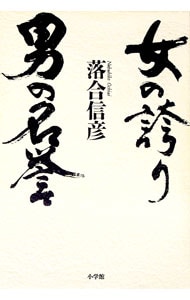 女の誇り
男の名誉
落合信彦
Nobuhiko Ochiai
小学館